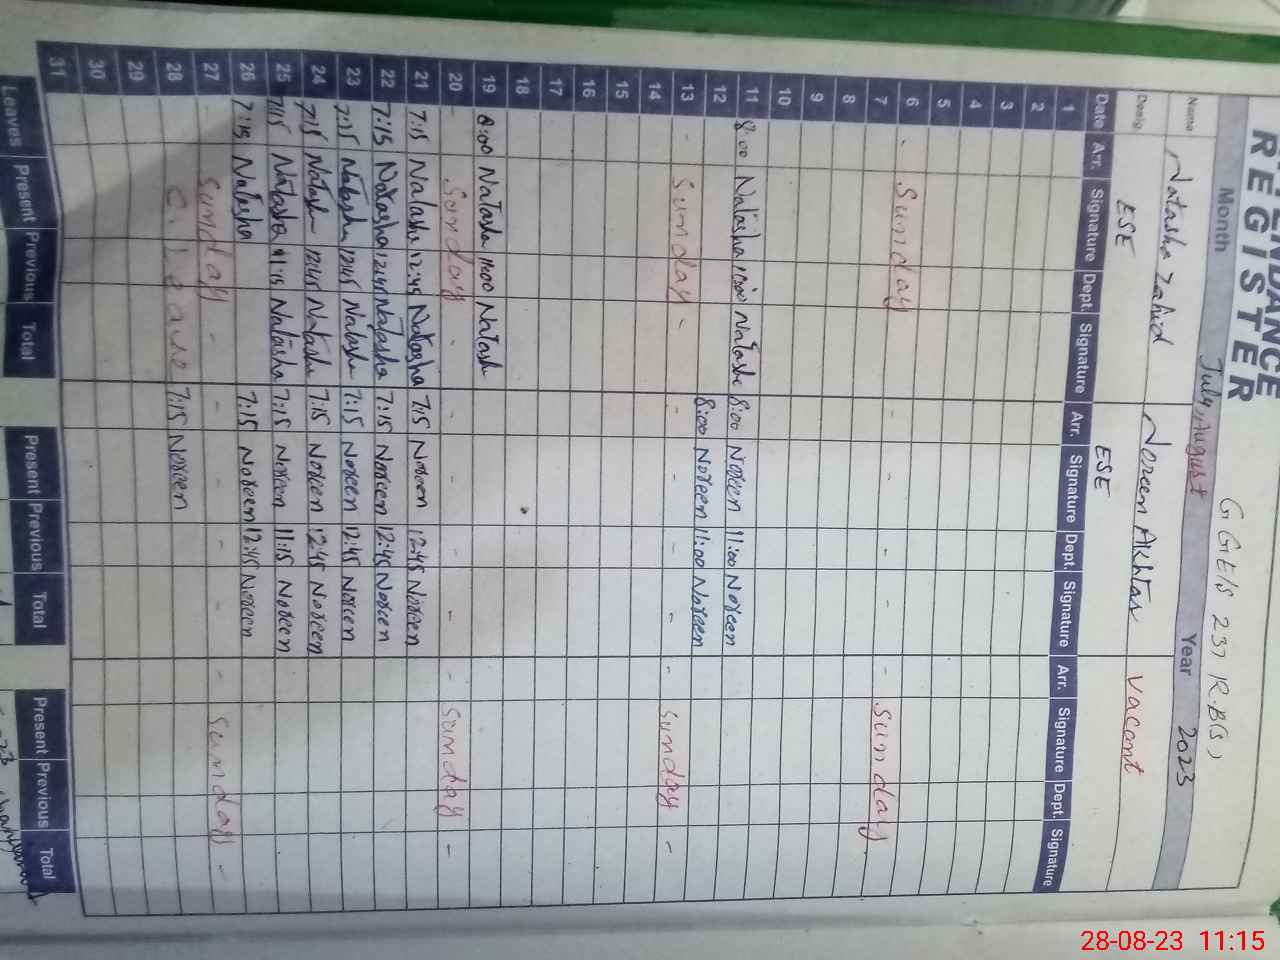 REGISTER
GGE/S 237 R.B(S)
Month July, August Year 2023
Name Natasha Zahid Noreen Akhtar Vacant
Desig ESE ESE
Date Arr. Signature Dept. Signature Arr. Signature Dept. Signature Arr. Signature Dept. Signature
1
2
3
4
5
6 - Sunday - - - - - Sunday
7
8
9
10
11 8:00 Natasha 11:00 Natasha 8:00 Noreen 11:00 Noreen
12 8:00 Noreen 11:00 Noreen
13 - Sunday - - - - - - Sunday -
14
15
16
17
18
19 8:00 Natasha 11:00 Natasha
20 - Sunday - - - - - - Sunday -
21 7:15 Natasha 12:45 Natasha 7:15 Noreen 12:45 Noreen
22 7:15 Natasha 12:45 Natasha 7:15 Noreen 12:45 Noreen
23 7:15 Natasha 12:45 Natasha 7:15 Noreen 12:45 Noreen
24 7:15 Natasha 12:45 Natasha 7:15 Noreen 12:45 Noreen
25 7:15 Natasha 11:15 Natasha 7:15 Noreen 11:15 Noreen
26 7:15 Natasha 7:15 Noreen 12:45 Noreen
27 - Sunday - - - - - - Sunday -
28 C. Leave 7:15 Noreen
29
30
31
Leaves Present Previous Total Present Previous Total Present Previous Total
28-08-23 11:15